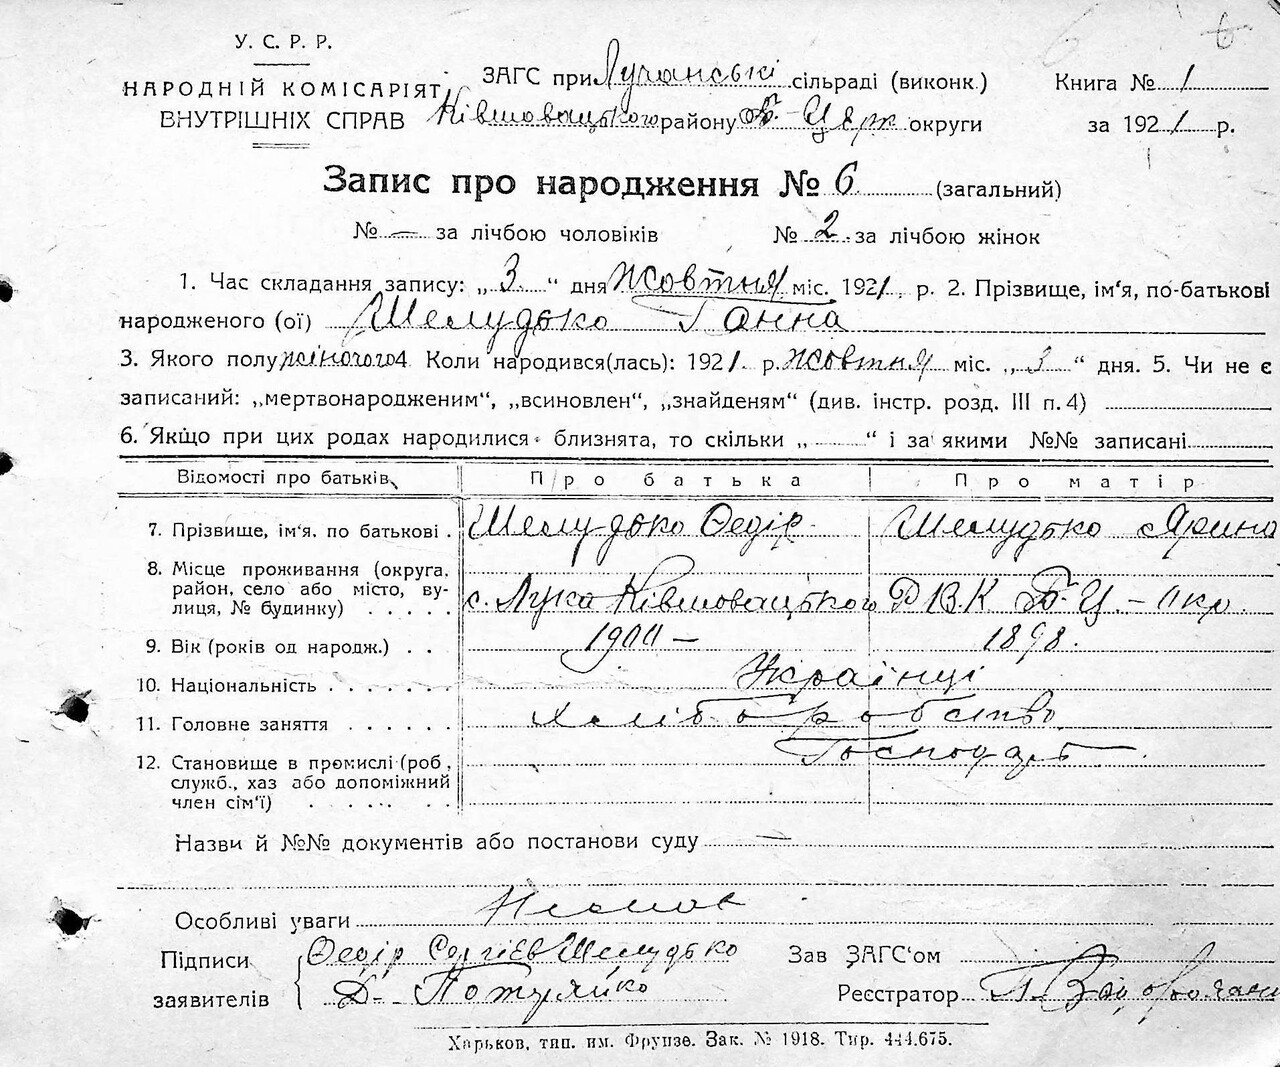 6
У. С. Р. Р.
НАРОДНІЙ КОМІСАРІЯТ
ВНУТРІШНІХ СПРАВ
ЗАГС при Лучанські сільраді (виконк.)
Ківшовацького району Б-Церк округи
Книга № 1
за 1921 р.
Запис про народження № 6 (загальний)
№ — за лічбою чоловіків № 2 за лічбою жінок
1. Час складання запису: „ 3 “ дня жовтня міс. 1921 р. 2. Прізвище, ім‘я, по-батькові
народженого (ої) Шелудько Ганна
3. Якого полу жіночого 4 Коли народився(лась): 1921 р. жовтня міс. „ 3 “ дня. 5. Чи не є
записаний: „мертвонародженим“, „всиновлен“, „знайденям“ (див. інстр. розд. III п. 4)
6. Якщо при цих родах народилися близнята, то скільки „ “ і за якими №№ записані
Відомості про батьків Про батька Про матір
7. Прізвище, ім‘я. по батькові . Шелудько Федір Шелудько Ярина
8. Місце проживання (округа,
район, село або місто, ву-
лиця, № будинку) . . . . . с. Лука Ківшовацького РВК Б-Ц-окр.
9. Вік (років од народж.) . . 1900 — 1898.
10. Національність . . . . . . . Українці
11. Головне заняття . . . . . . Хліборобство
12. Становище в промислі (роб., Господарь
служб., хаз або допоміжний
член сім‘ї) . . . . . .
Назви й №№ документів або постанови суду —
Особливі уваги
Підписи Федір Сергієв Шелудько Зав ЗАГС‘ом
заявителів Д. Потуряйко Реєстратор
Харьков, тип. им. Фрунзе. Зак. № 1918. Тир. 444.675.